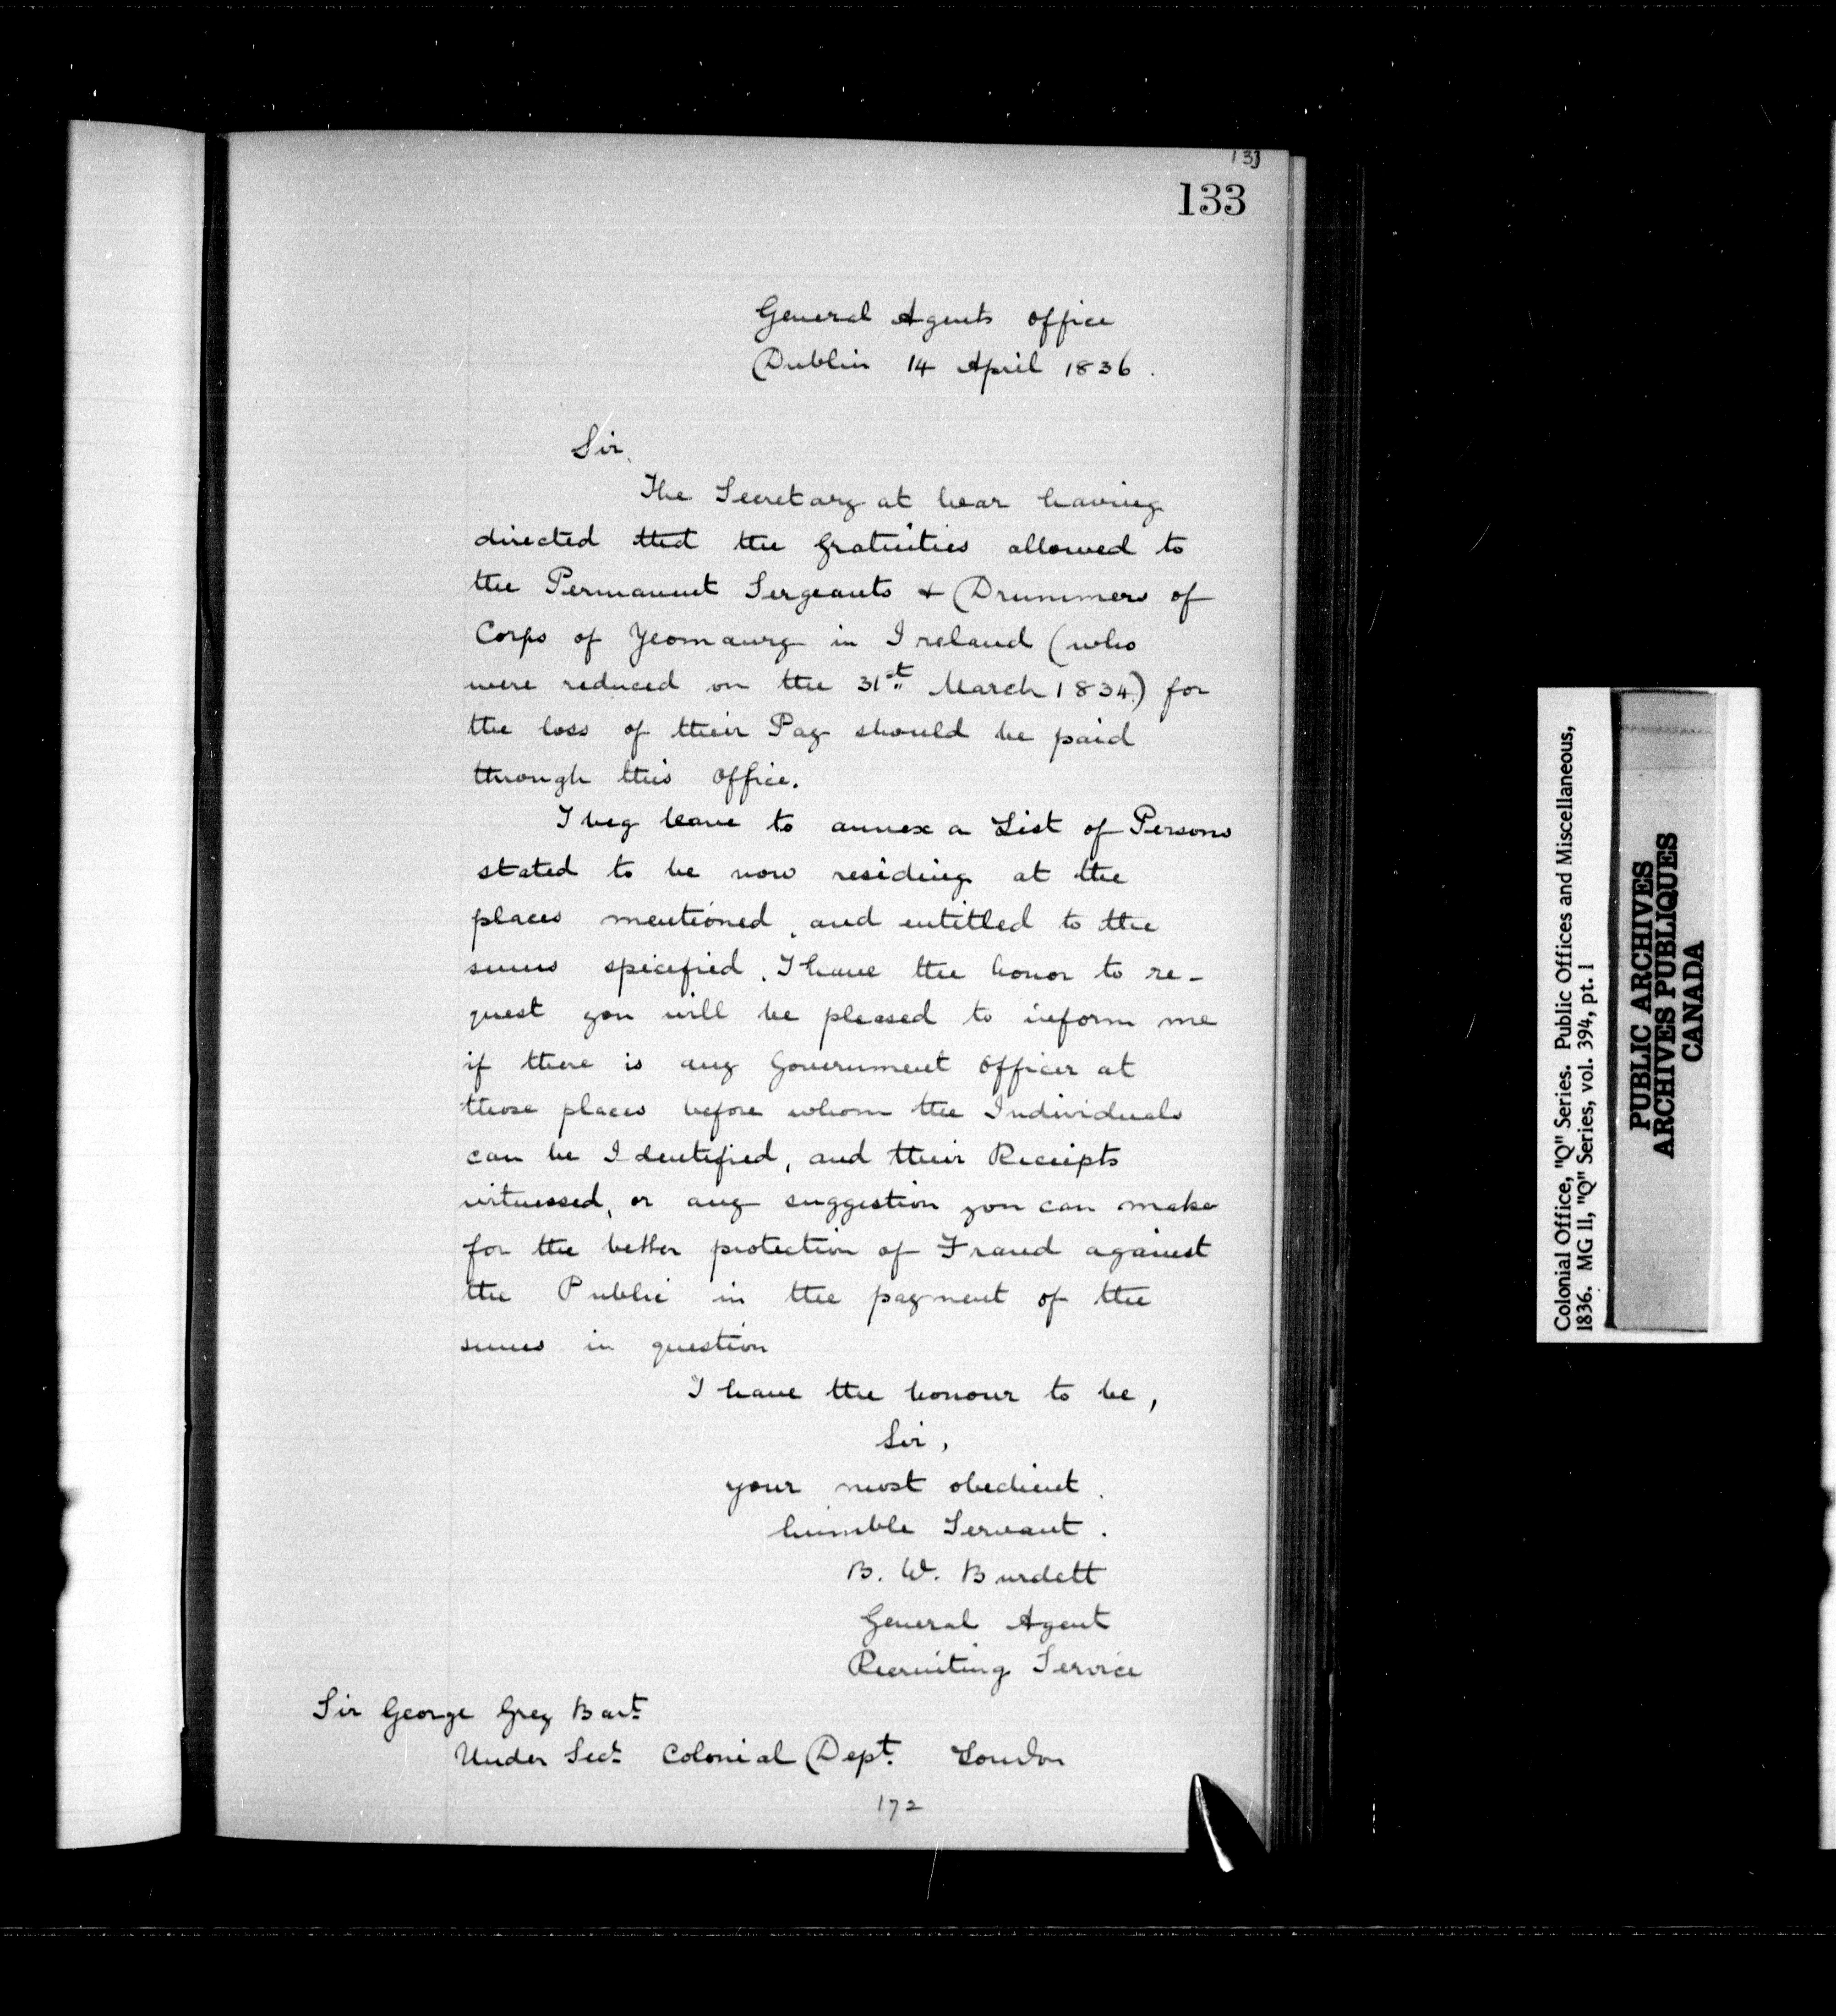 133
133
General Agents Office
Dublin 14 April 1836.
Sir,
The Secretary at War having
directed that the Gratuities allowed to
the Permanent Sergeants & Drummers of
Corps of Yeomanry in Ireland (who
were reduced on the 31st March 1834) for
the loss of their Pay should be paid
through this Office.
I beg leave to annex a List of Persons
stated to be now residing at the
places mentioned, and entitled to the
sums spicified. I have the honor to re-
quest you will be pleased to inform me
if there is any Government Officer at
those places before whom the Individuals
can be Identified, and their Receipts
witnessed, or any suggestion you can make
for the better protection of Fraud against
the Public in the payment of the
sums in question
I have the honour to be,
Sir,
your most obedient.
humble Servant.
B. W. Burdett
General Agent
Recruiting Service
Sir George Grey Bart
Under Secy Colonial Dept. London
172
Colonial Office, "Q" Series. Public Offices and Miscellaneous,
1836. MG 11, "Q" Series, vol. 394, pt. 1
PUBLIC ARCHIVES
ARCHIVES PUBLIQUES
CANADA